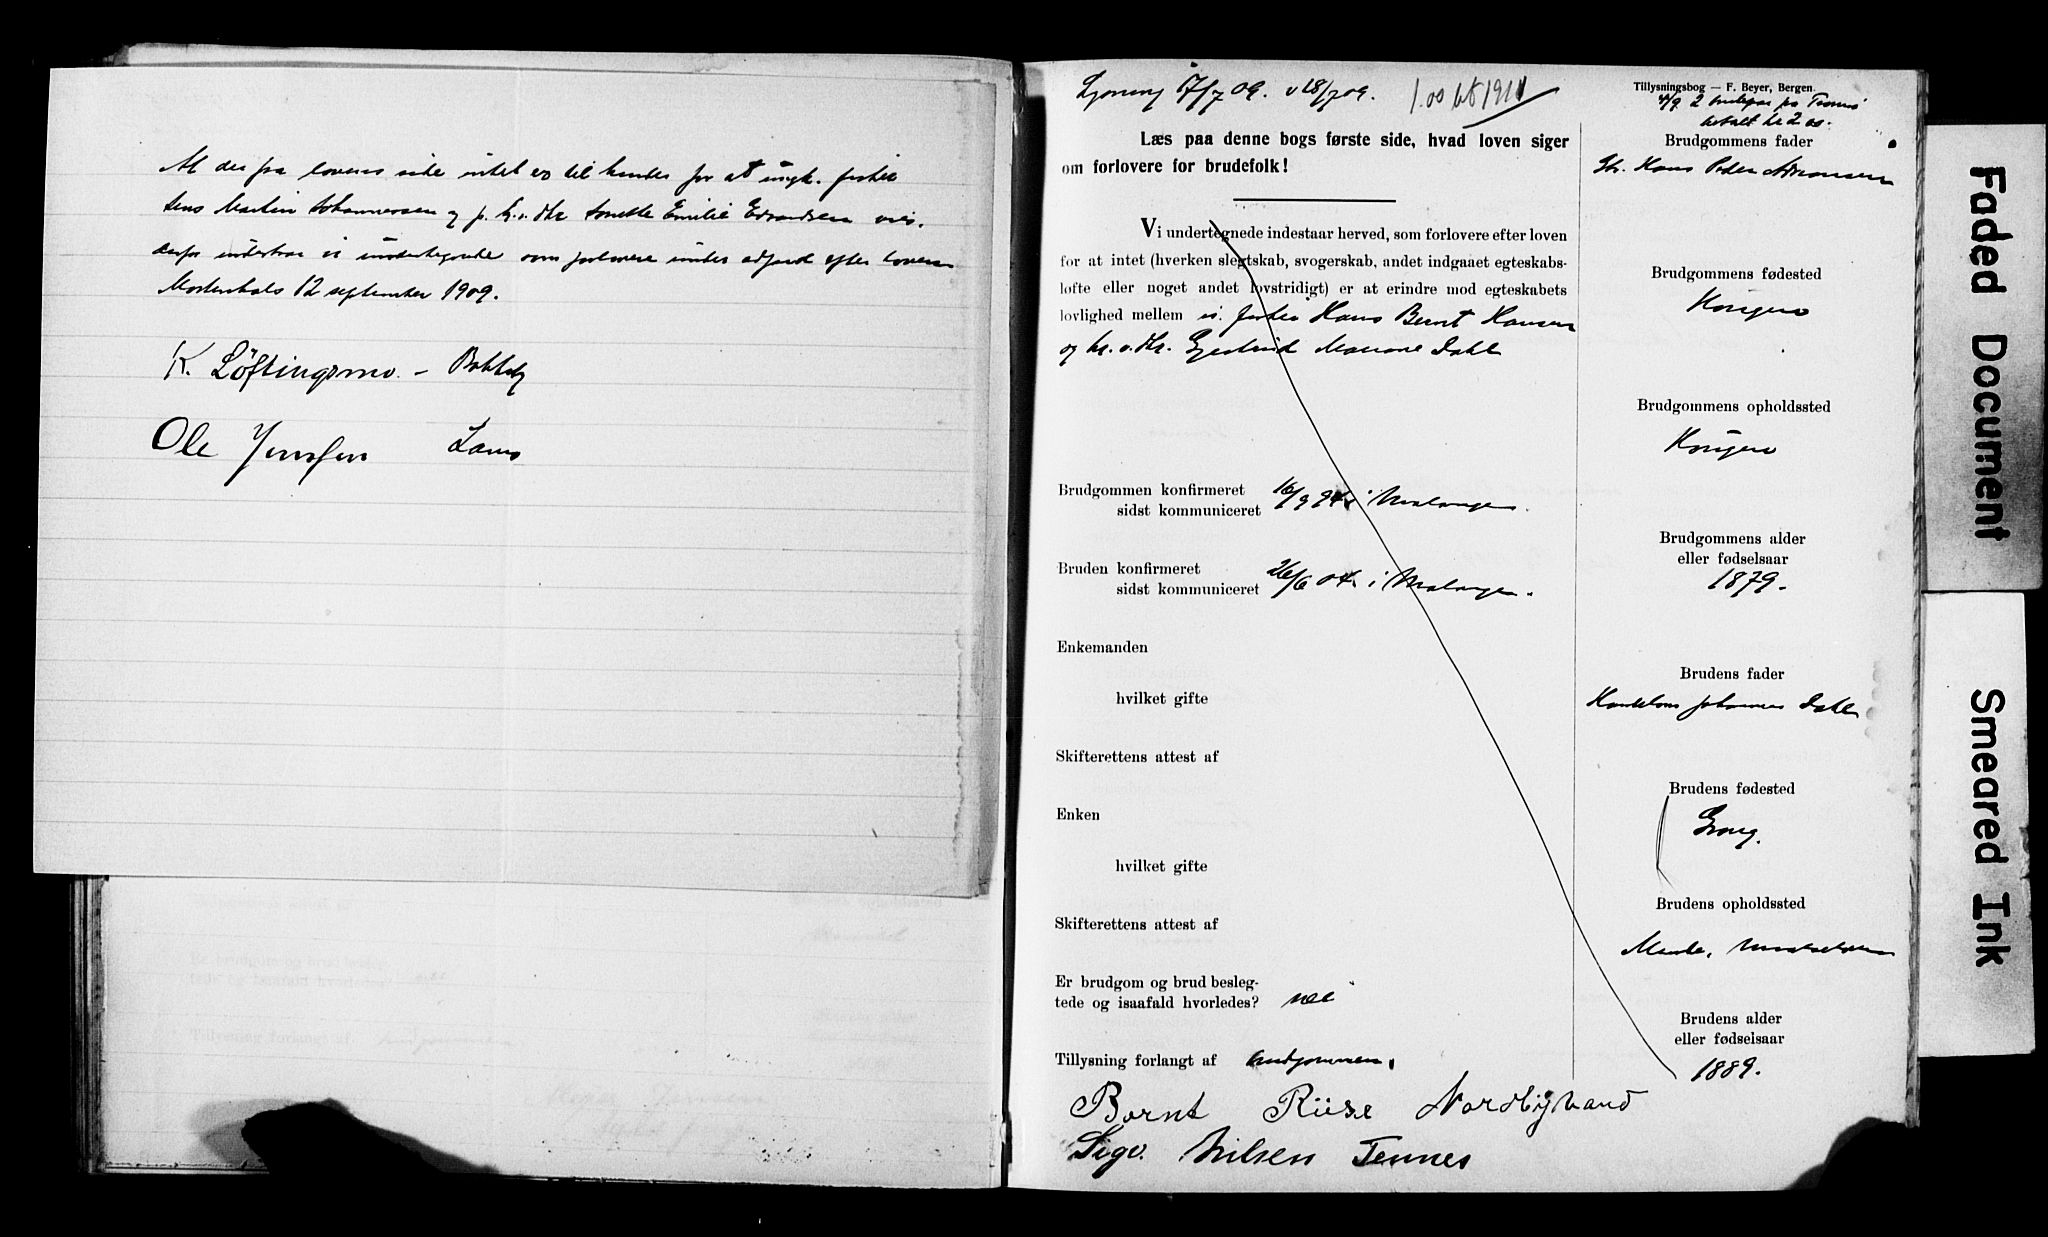 At der fra lovens side intet er til hinder for at ungk. fisker
Jens Martin Johannessen og p. k. v. dtr Anette Emilie Edvardsen vies.
derfor indestaar vi undertegnede som forlovere under adfærd efter loven
Mortenhals 12 september 1909.
K. Löftingsmo. –
Ole Jensen
Lysning 17/7 09. 18/7 09. 1.00 1911
Tillysningsbog — F. Beyer, Bergen.
2
betalt kr 2 00.
Læs paa denne bogs første side, hvad loven siger
om forlovere for brudefolk!
Vi undertegnede indestaar herved, som forlovere efter loven
for at intet (hverken slegtskab, svogerskab, andet indgaaet egteskabs-
løfte eller noget andet lovstridigt) er at erindre mod egteskabets
lovlighed mellem fisker Hans Bernt Hansen
og k. v. dtr. Gjertrud Marione Dahl
Brudgommen konfirmeret
sidst kommuniceret 16/9 94 i Malangen.
Bruden konfirmeret
sidst kommuniceret 26/6 04 i Malangen.
Enkemanden
hvilket gifte
Skifterettens attest af
Enken
hvilket gifte
Skifterettens attest af
Er brudgom og brud besleg-
tede og isaafald hvorledes? nei
Tillysning forlangt af brudgommen.
Brudgommens fader
Hans Peder
Brudgommens fødested
Brudgommens opholdssted
Brudgommens alder
eller fødselsaar
1879.
Brudens fader
Johannes Dahl
Brudens fødested
Grong.
Brudens opholdssted
Brudens alder
eller fødselsaar
1889.
Bernt Riise Nordbystrand
Sigv. Nilsen Tennes
Faded Document
Smeared Ink